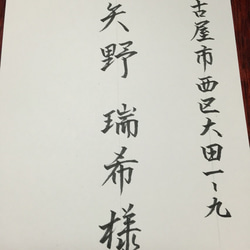 古屋市西区大田一-九
矢野 瑞希様